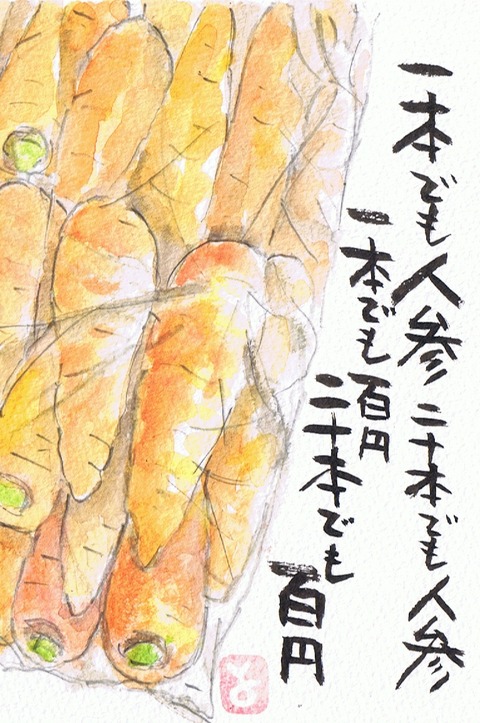 一本でも人参 二十本でも人参
一本でも百円
二十本でも
百円